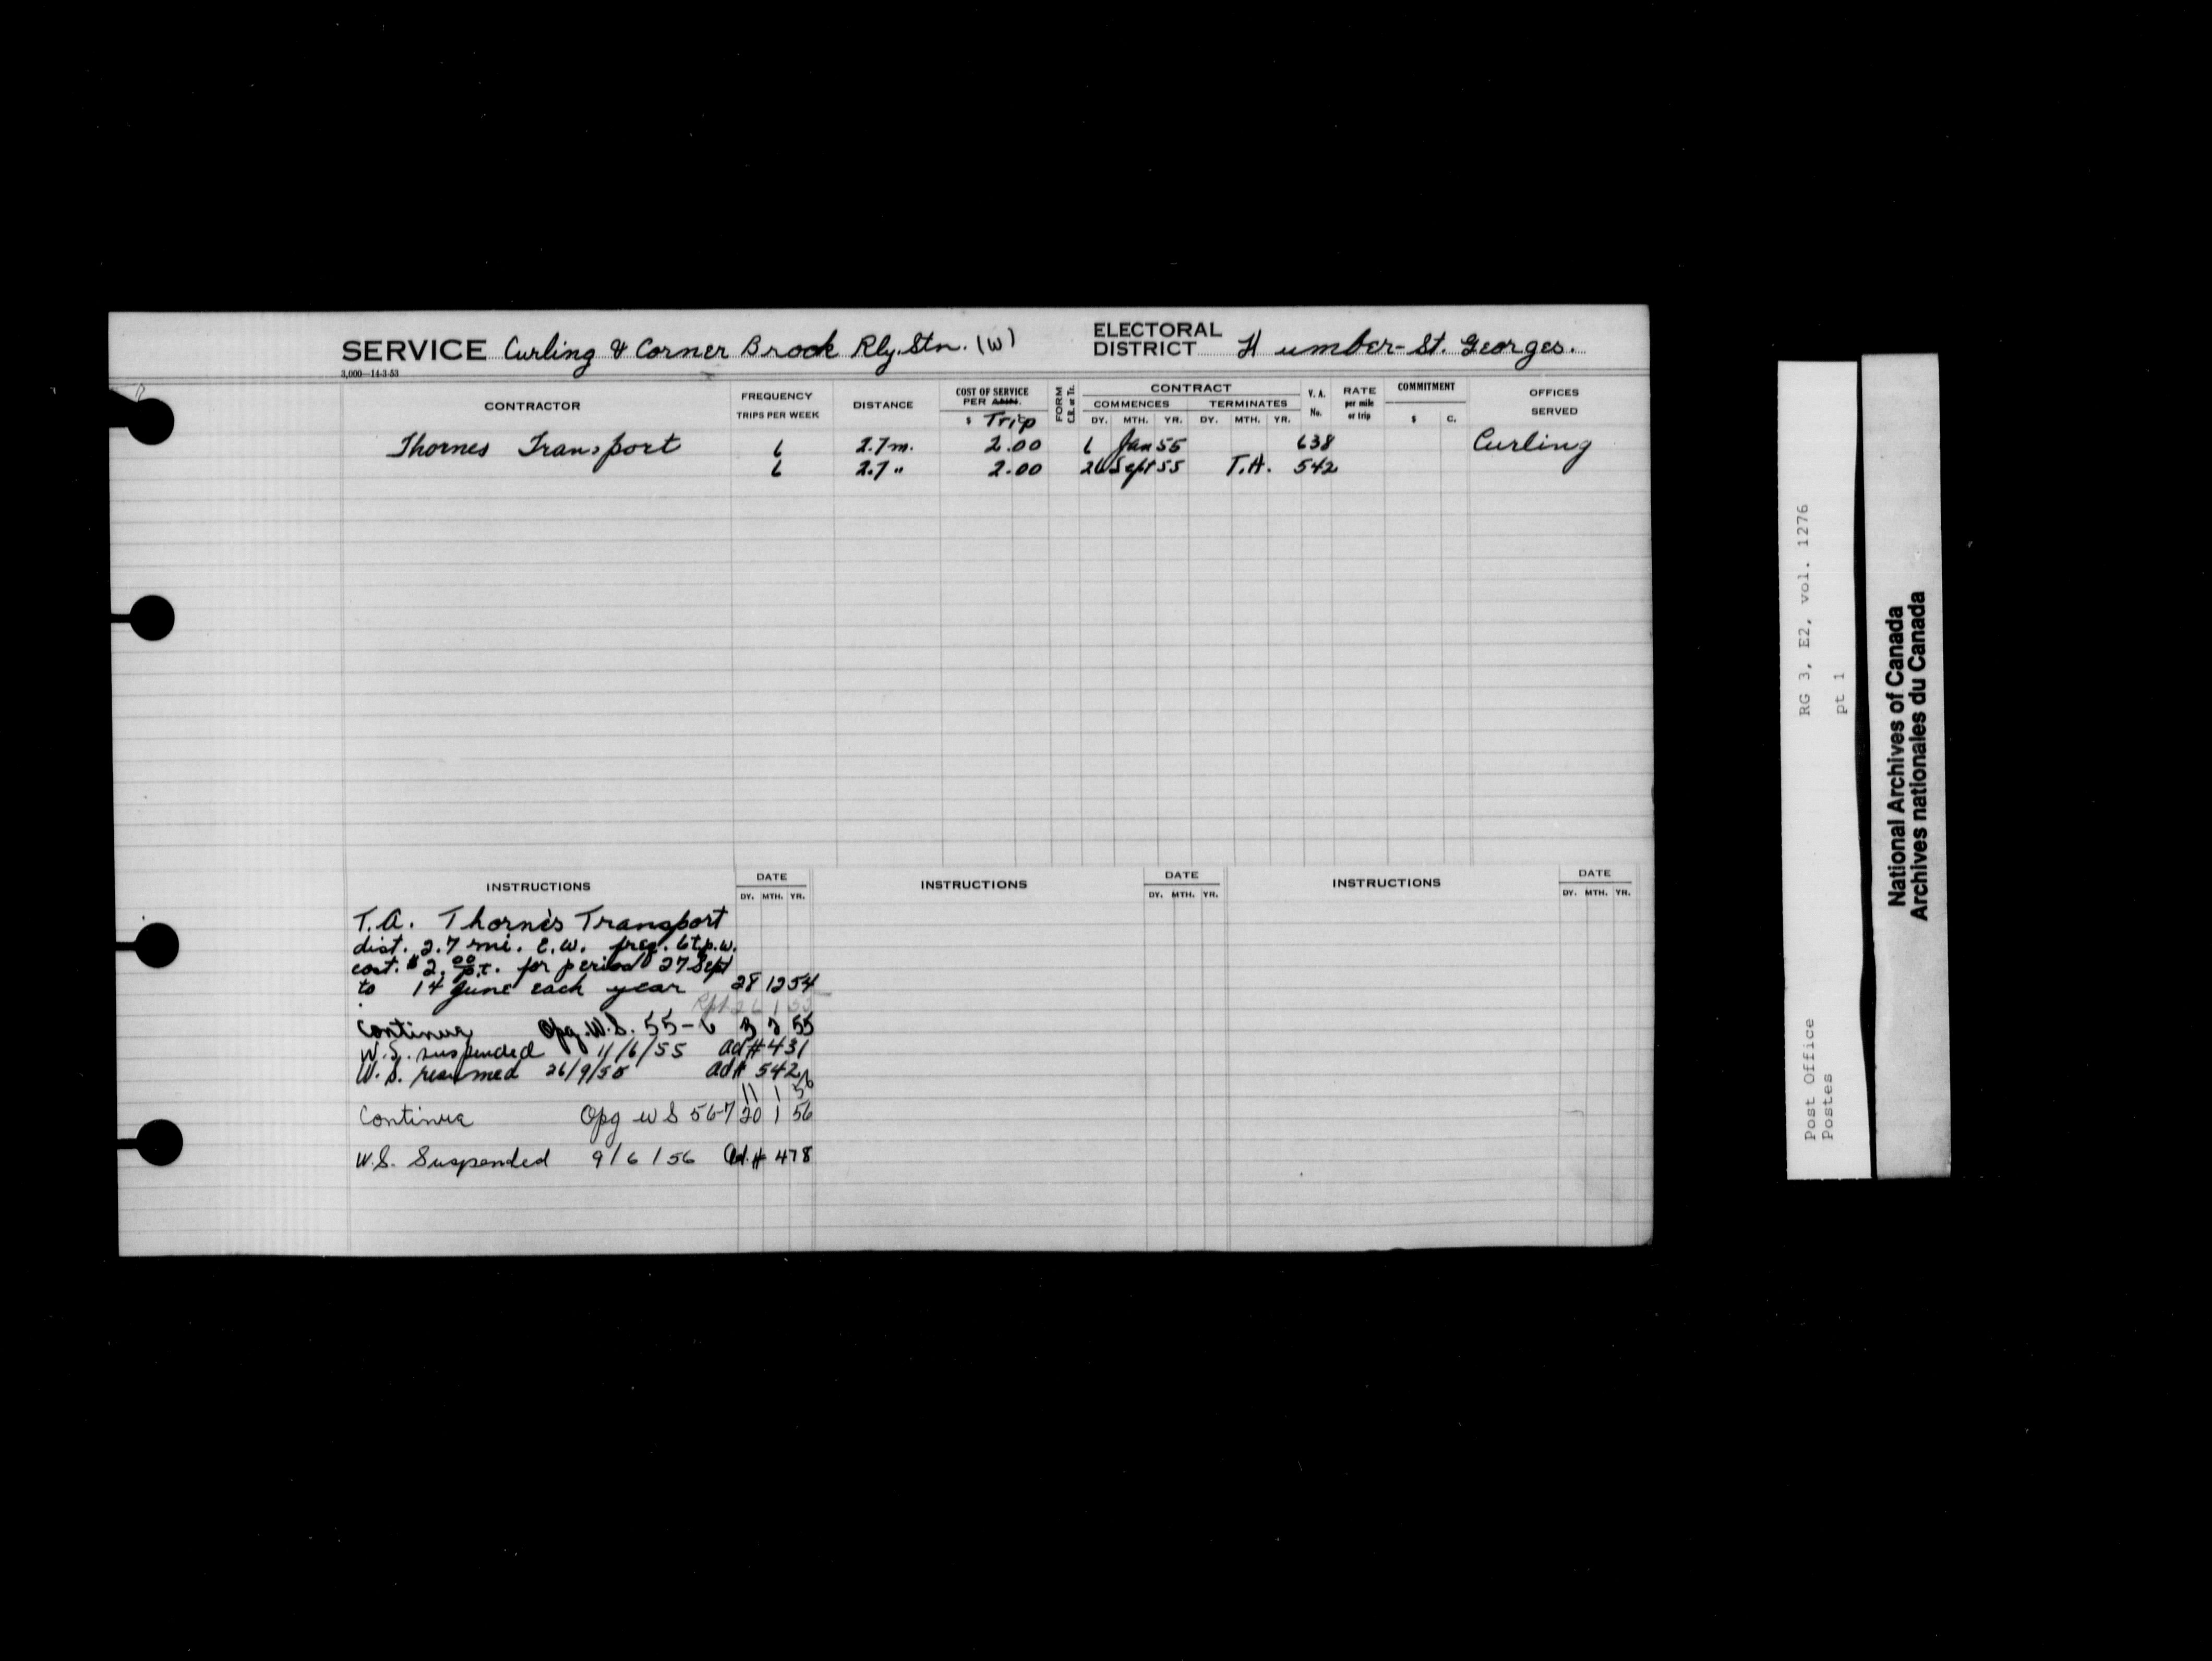 SERVICE Curling & Corner Brook Rly. Stn. (W) ELECTORAL DISTRICT Humber-St. Georges.
3,000-14-3-53
CONTRACTOR FREQUENCY TRIPS PER WEEK DISTANCE COST OF SERVICE PER ANN. $ Trip FORM C.R. or Tr. CONTRACT COMMENCES DY. MTH. YR. TERMINATES DY. MTH. YR. V. A. No. RATE per mile or trip COMMITMENT $ C. OFFICES SERVED
Thornes Transport 6 2.7 m. 2.00 6 Jan 55 638 Curling
6 2.7 " 2.00 26 Sept 55 T.A. 542
INSTRUCTIONS DATE DY. MTH. YR. INSTRUCTIONS DATE DY. MTH. YR. INSTRUCTIONS DATE DY. MTH. YR.
T.A. Thorne's Transport
dist. 2.7 mi. e.w. freq. 6 t.p.w.
cost. $2.00 p.t. for period 27 Sept
to 14 June each year 28 12 54
Continue Opg. W.S. 55-6 55
W.S. suspended 11/6/55 ad # 431
W.S. resumed 26/9/55 ad # 542
11 1 56
Continue Opg W S 56-7 20 1 56
W.S. Suspended 9/6/56 Ad. # 478
RG 3, E2, vol. 1276
pt 1
Post Office
Postes
National Archives of Canada
Archives nationales du Canada